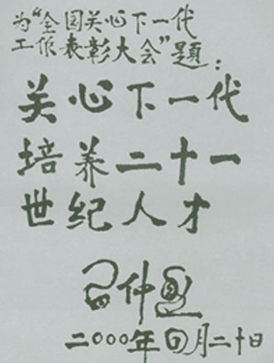 为“全国关心下一代
工作表彰大会”题：
关心下一代
培养二十一
世纪人才
习仲勋
二〇〇〇年四月二十日